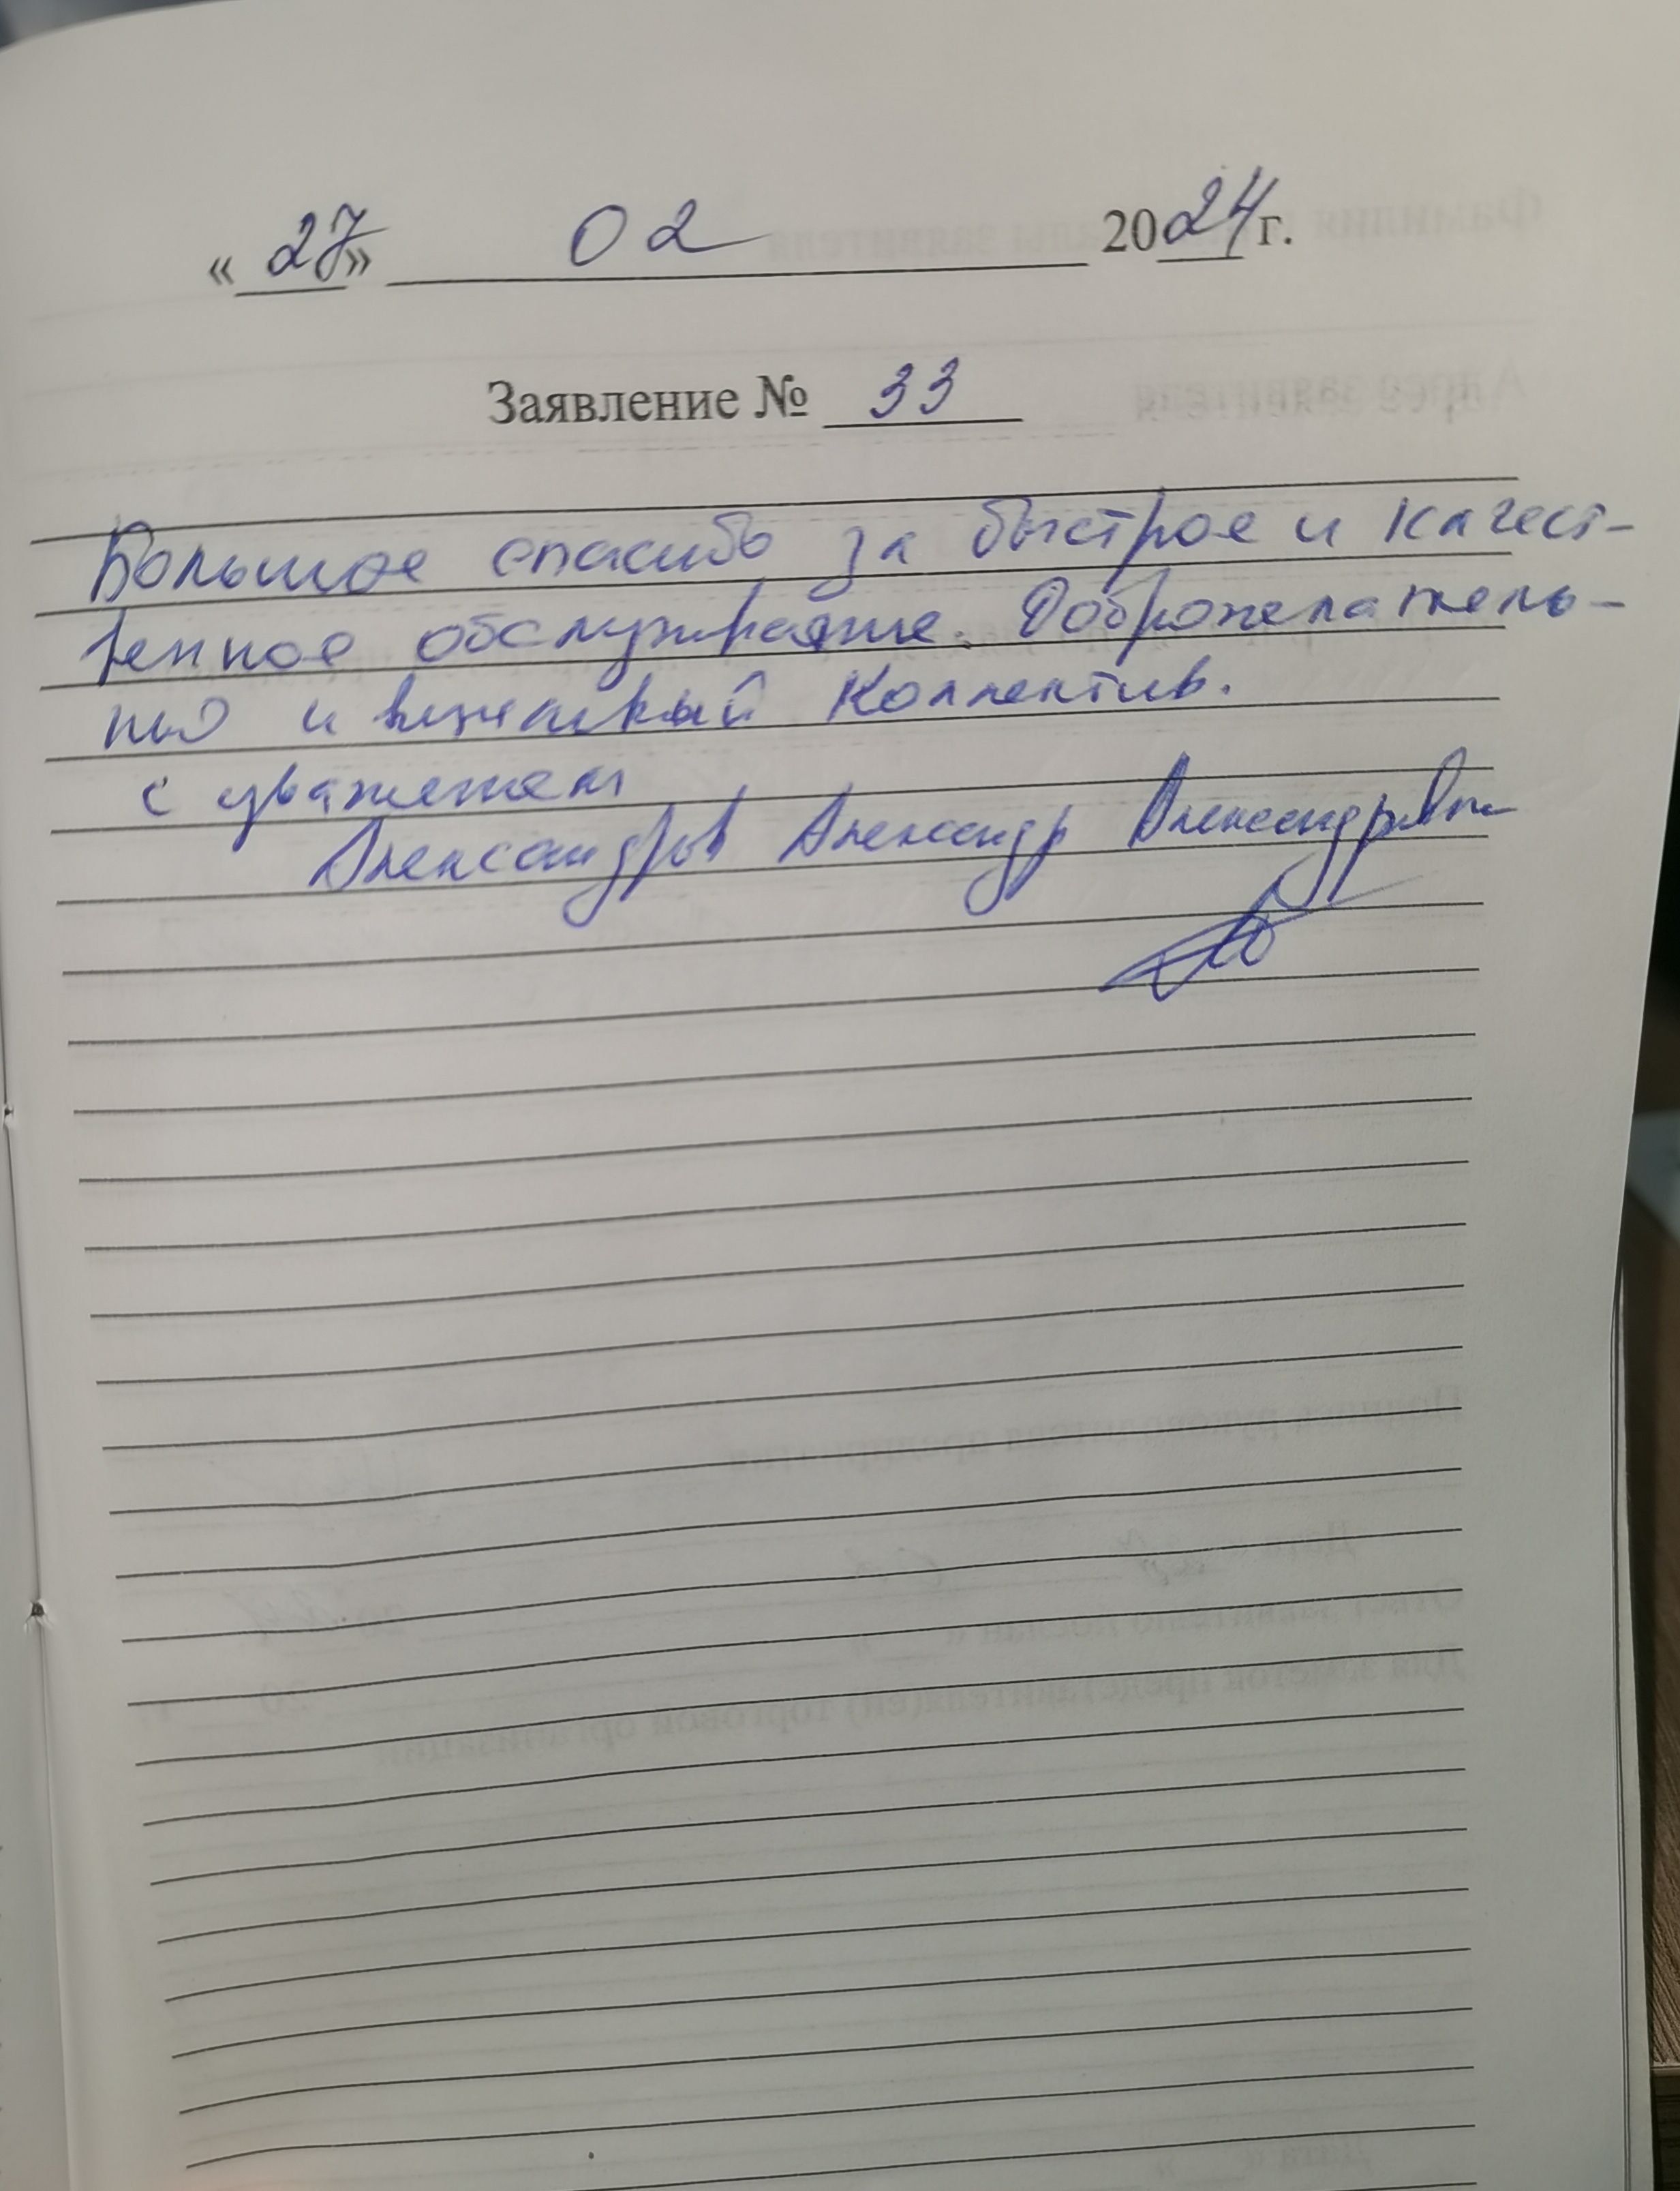 «27» 02 2024 г.
Заявление № 33
Большое спасибо за быстрое и качест-
венное обслуживание. Доброжелатель-
но и вежливый коллектив.
с уважением
Александров Александр Александрович